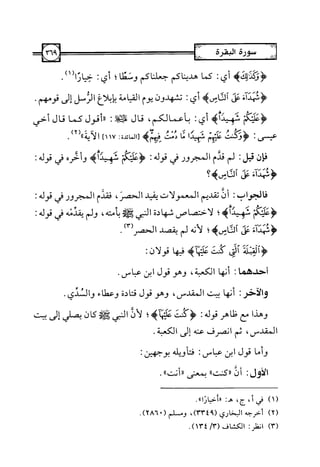 سورة البقرة
٣٦٩
﴿وَكَذَٰلِكَ﴾ أي: كما هديناكم جعلناكم وسَطًا؛ أي: خيارًا(١).
﴿شُهَدَآءَ عَلَى ٱلنَّاسِ﴾ أي: تشهدون يوم القيامة بإبلاغ الرُّسل إلى قومهم.
﴿عَلَيْكُمْ شَهِيدًا﴾ أي: بأعمالكم، قال ﷺ: «أقول كما قال أخي
عيسى: ﴿وَكُنتُ عَلَيْهِمْ شَهِيدًا مَّا دُمْتُ فِيهِمْ﴾ [المائدة: ١١٧] الآية»(٢).
فإن قيل: لم قدَّم المجرور في قوله: ﴿عَلَيْكُمْ شَهِيدًا﴾ وأخَّره في قوله:
﴿شُهَدَآءَ عَلَى ٱلنَّاسِ﴾؟
فالجواب: أنَّ تقديم المعمولات يفيد الحصرَ، فقدَّم المجرور في قوله:
﴿عَلَيْكُمْ شَهِيدًا﴾؛ لاختصاص شهادة النبي ﷺ بأمته، ولم يقدِّمه في قوله:
﴿شُهَدَآءَ عَلَى ٱلنَّاسِ﴾؛ لأنه لم يقصد الحصر(٣).
﴿ٱلْقِبْلَةَ ٱلَّتِى كُنتَ عَلَيْهَآ﴾ فيها قولان:
أحدهما: أنها الكعبة، وهو قول ابن عباس.
والآخر: أنها بيت المقدس، وهو قول قتادة وعطاء والسُّدي.
وهذا مع ظاهر قوله: ﴿كُنتَ عَلَيْهَآ﴾؛ لأنَّ النبي ﷺ كان يصلي إلى بيت
المقدس، ثم انصرف عنه إلى الكعبة.
وأما قول ابن عباس: فتأويله بوجهين:
الأول: أنَّ «كنت» بمعنى «أنت».
(١) في أ، ج، هـ: «أخيارًا».
(٢) أخرجه البخاري (٣٣٤٩)، ومسلم (٢٨٦٠).
(٣) انظر: الكشاف (٣/ ١٣٤).